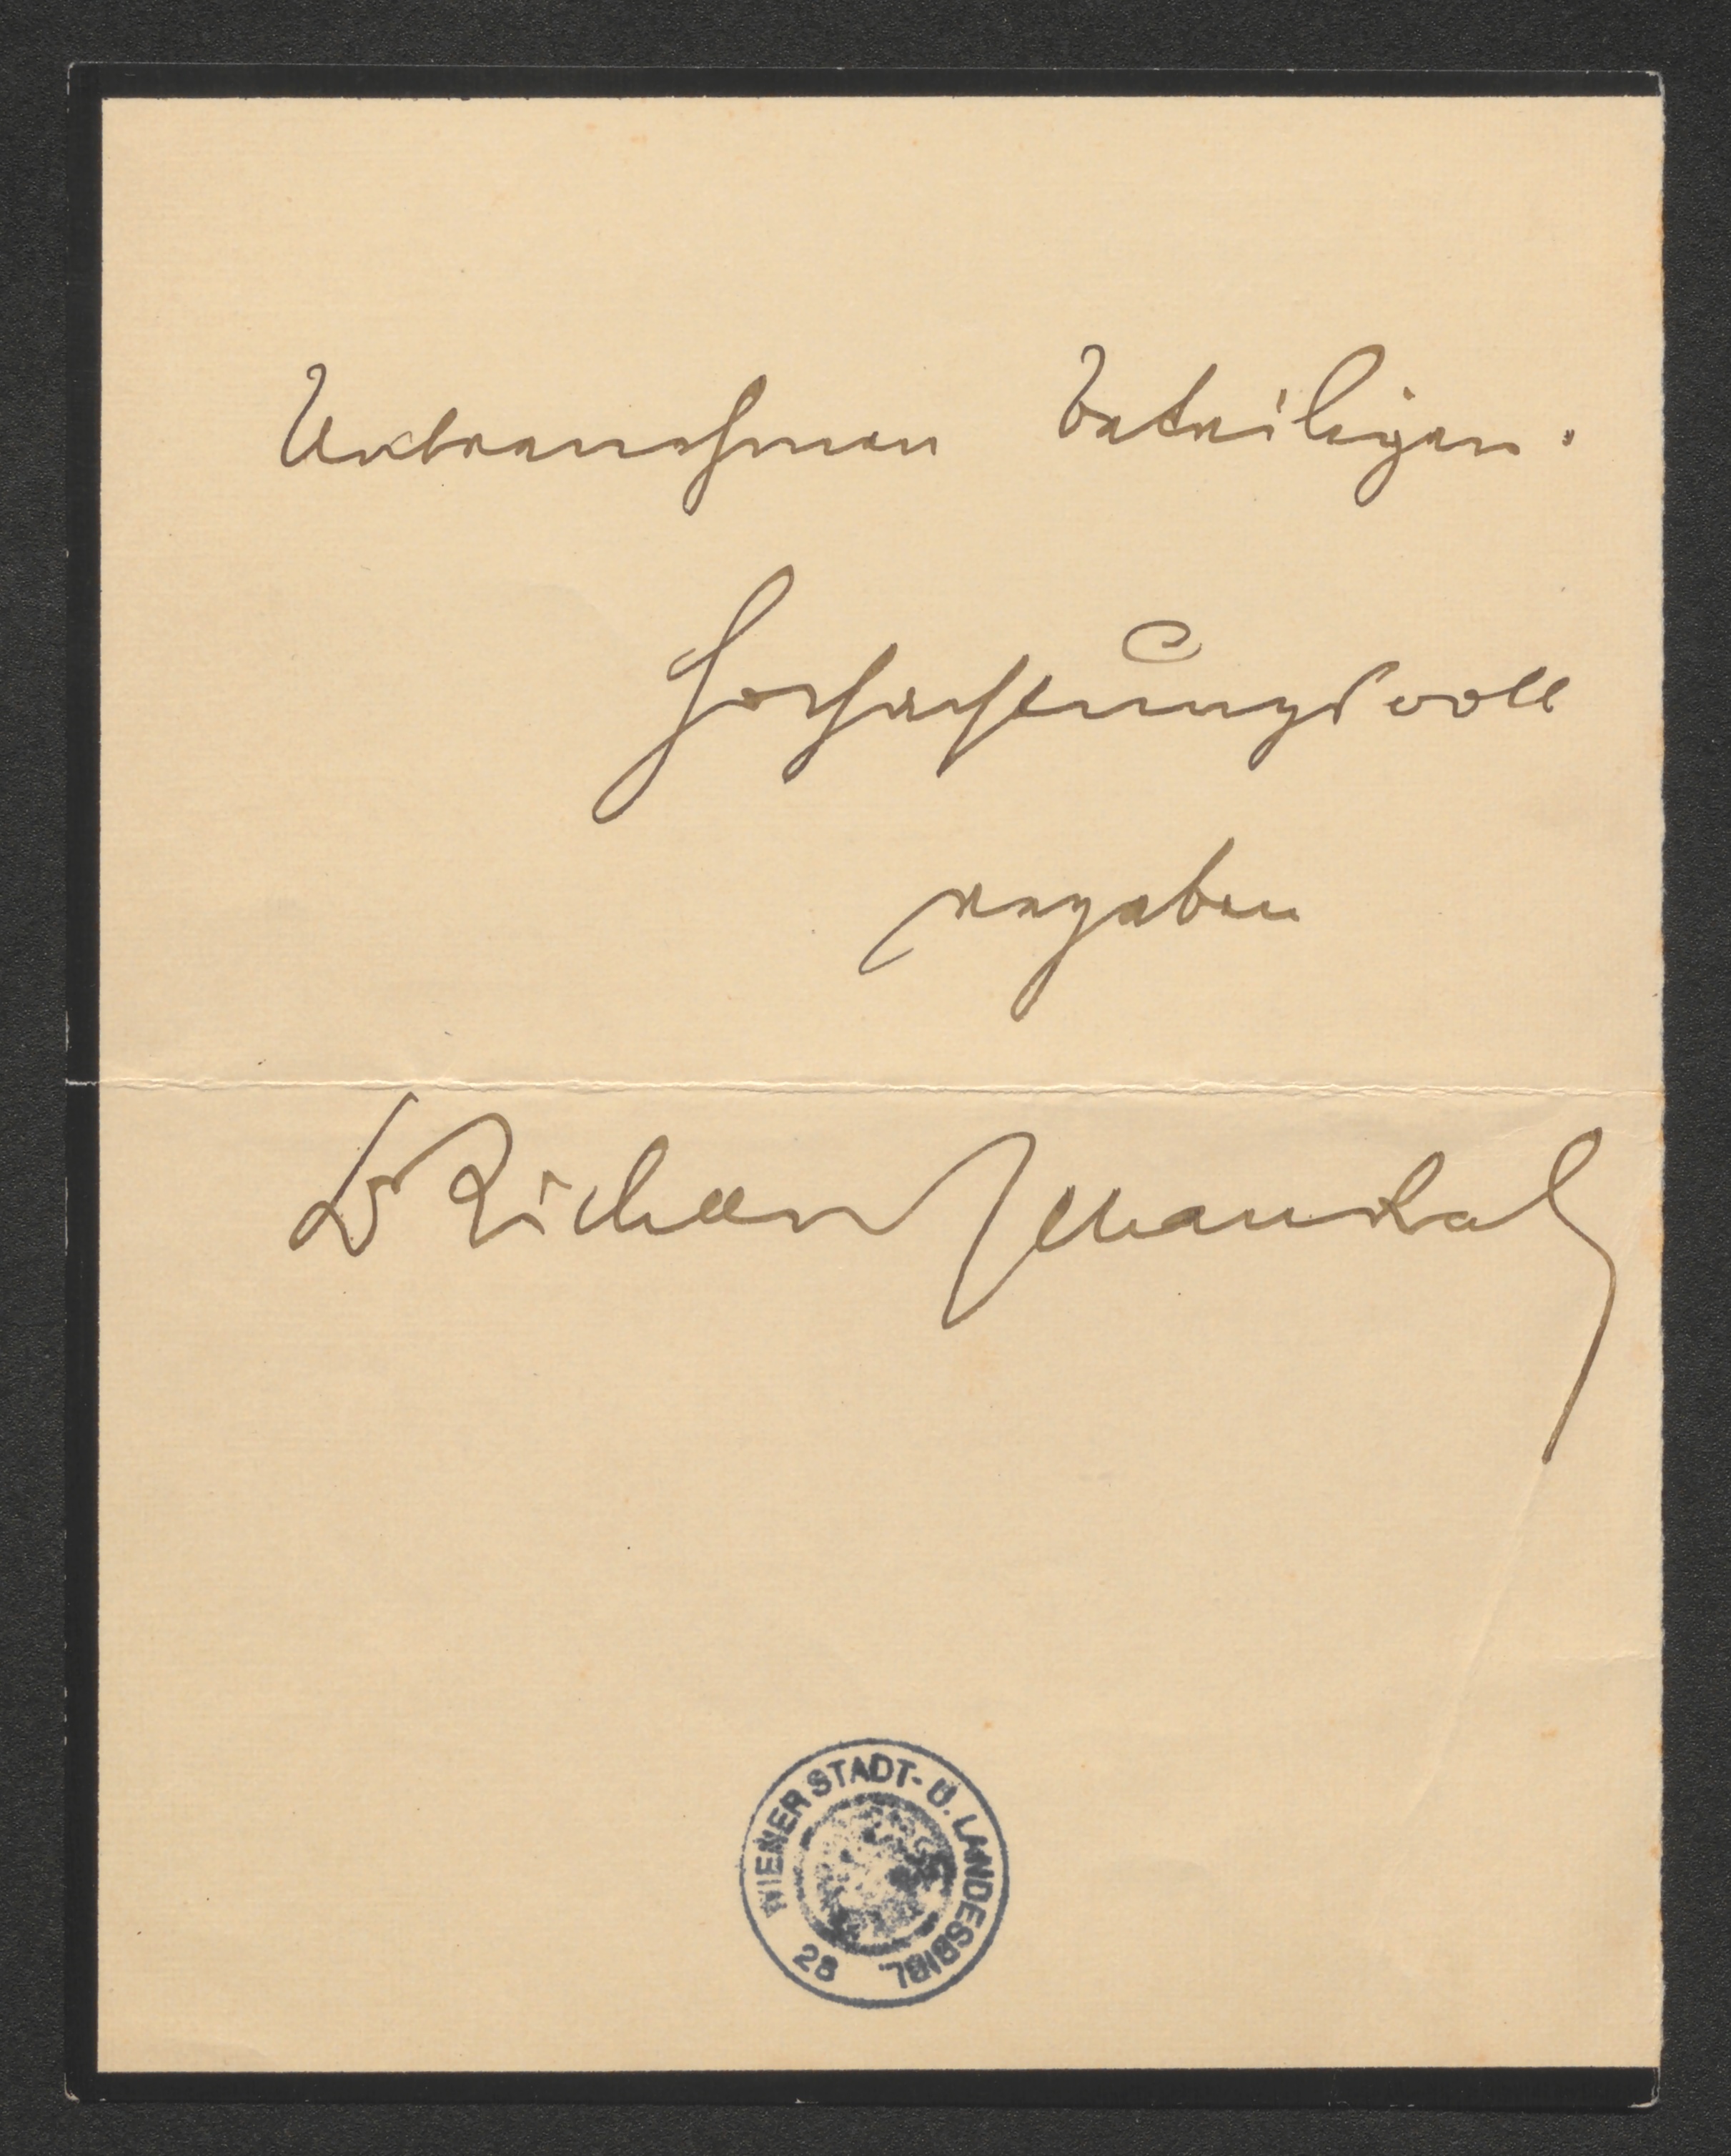 Unternehmen beteiligen.
Hochachtungsvoll
ergeben
Dr Richard Mandl
WIENER STADT- U. LANDESBIBL.
28